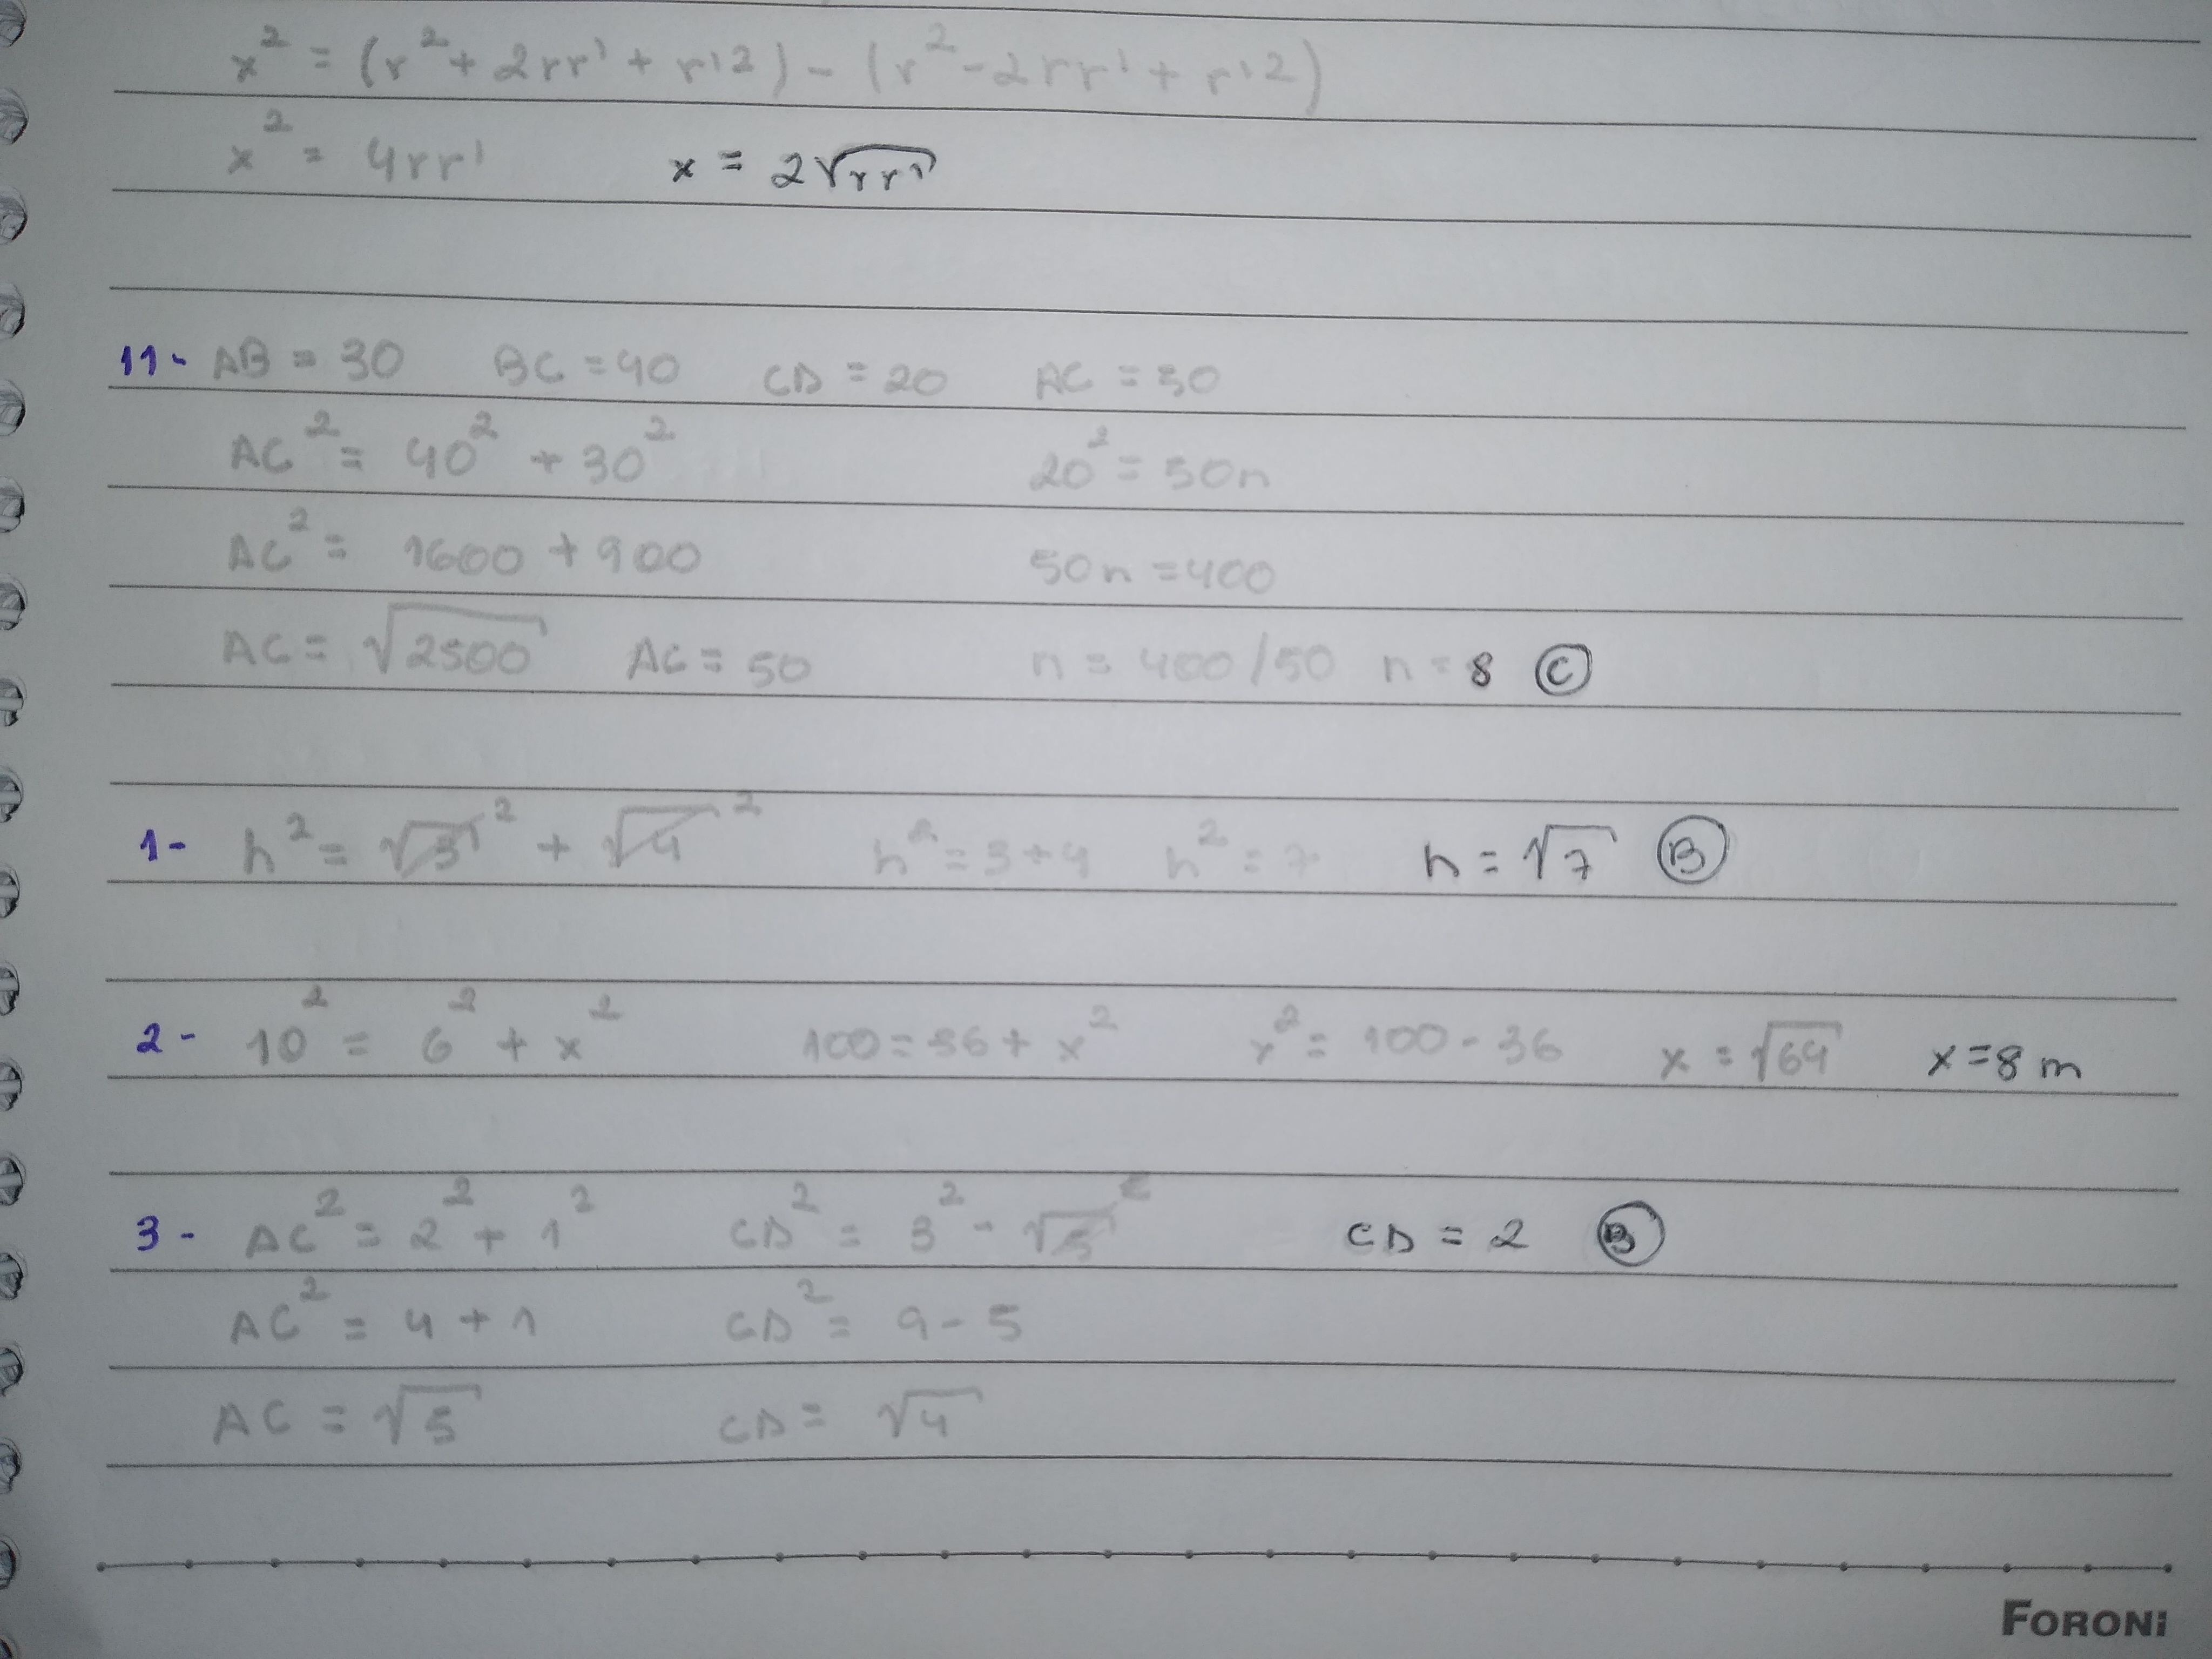 x² = (r² + 2rr' + r'2) - (r² - 2rr' + r'2)
x² = 4rr' x = 2√rr'
11- AB = 30 BC = 40 CD = 20 AC = 50
AC² = 40² + 30² 20² = 50n
AC² = 1600 + 900 50n = 400
AC = √2500 AC = 50 n = 400/50 n = 8 C
1- h² = √3² + √4² h² = 3 + 4 h² = 7 h = √7 B
2- 10² = 6² + x² 100 = 36 + x² x² = 100 - 36 x = √64 x = 8 m
3- AC² = 2² + 1² CD² = 3² - √5² CD = 2 B
AC² = 4 + 1 CD² = 9 - 5
AC = √5 CD = √4
FORONi